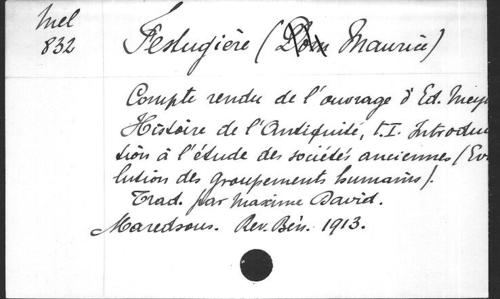 Mel
832
Festugière (Dom Maurice)
Compte rendu de l'ouvrage d'Ed. Meye
Histoire de l'Antiquité, t. I. Introduc
tion à l'étude des sociétés anciennes (Evo
lution des groupements humains).
Trad. par Maxime David.
Maredsous. Rev. Bén. 1913.